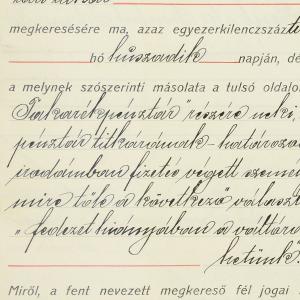 megkeresésére ma, azaz egyezerkilenczszázti
hó huszadik napján, dé
a melynek szószerinti másolata a tulsó oldalo
Takarékpénztár" részére neki,
pénztár titkárának - határozat
irodámban fizetés végett szemé
mire tőle a következőválaszt
„fedezet hiányában a váltóra
hetünk"
Miről, a fent nevezett megkereső fél jogai